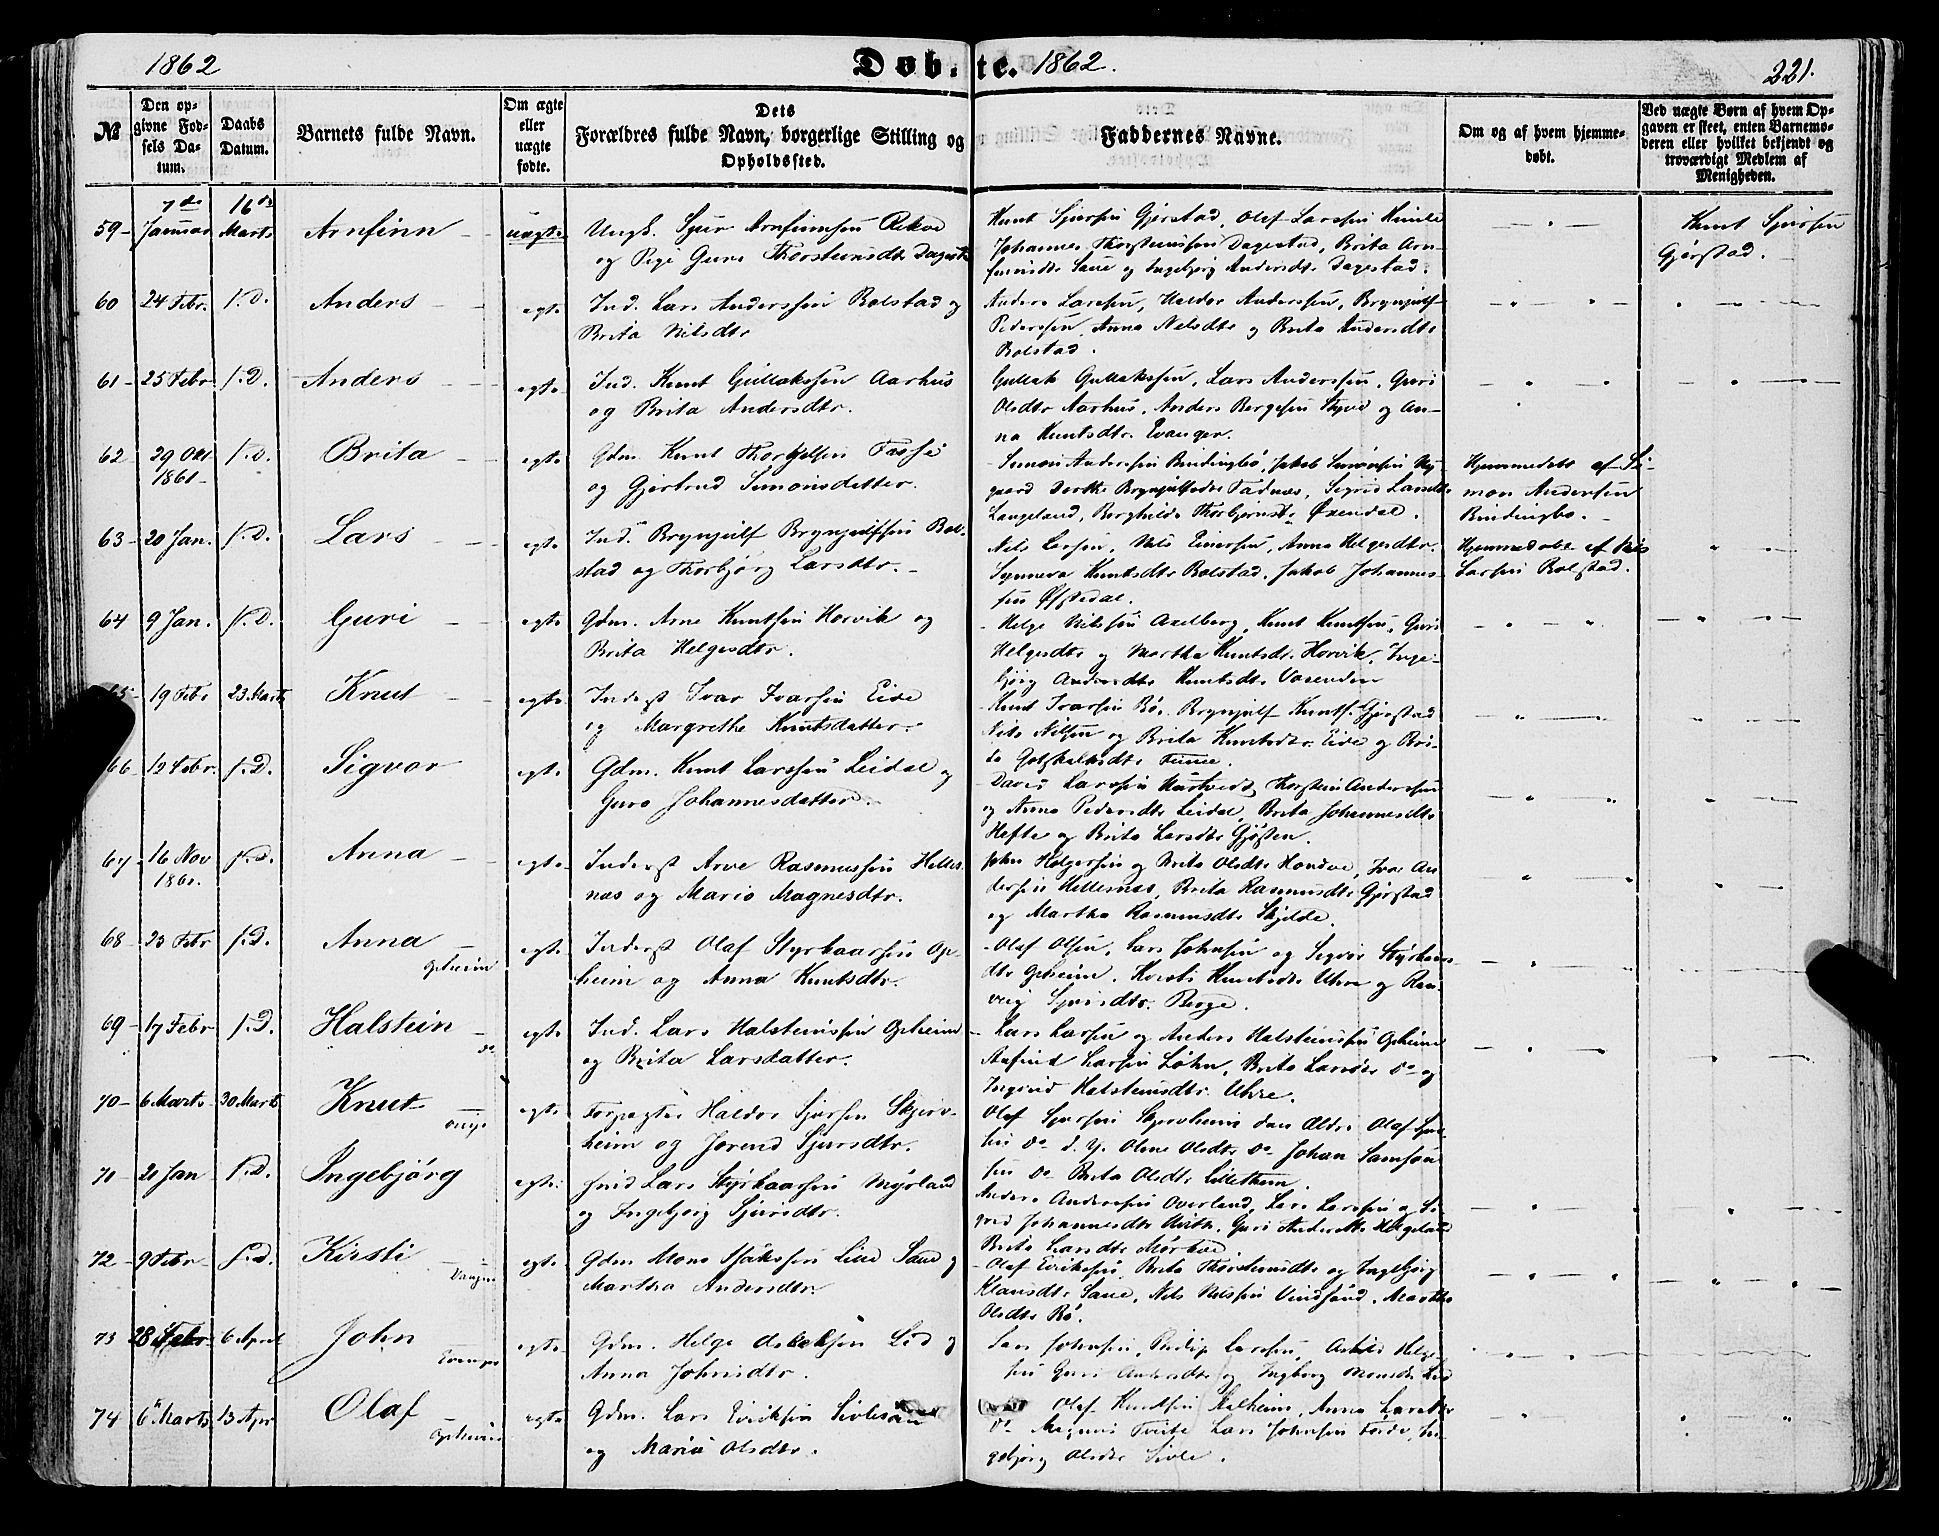 1862
Døbte.
1862.
221.
№
Den opgivne Fødsels Datum.
Daabs Datum.
Barnets fulde Navn.
Om ægte eller uægte fødte.
Dets Forældres fulde Navn, borgerlige Stilling og Opholdssted.
Faddernes Navne.
Om og af hvem hjemmedøbt.
Ved uægte Børn af hvem Opgaven er skeet, enten Barnemoderen eller hvilket bekjendt og troværdigt Medlem af Menigheden.
59 7de Januar 16de Marts Arnfinn uægte Ungk. Sjur Arnfinnsen Rekve
og Pige Guro Thorsteinsdtr Dagestad
Knut Sjursen Gjerstad, Olaf Larssen Himle
Johannes Thorsteinssen Dagestad, Brita Arn-
finnsdtr Saue og Ingebjorg Andersdtr Dagestad.
Knut Sjursen
Gjerstad.
60 24 Febr. s.D. Anders egte Ind. Lars Anderssen Bolstad og
Brita Nilsdtr
Anders Larssen, Haldor Anderssen, Brynjulf
Pederssen, Anna Nelsdtr og Brita Andersdtr
Bolstad.
61 25 Febr s.D. Anders egte Ind. Knut Gullakssen Aarhus
og Brita Andersdtr.
Gullak Gullakssen, Lars Anderssen, Guri
Olsdtr Aarhus, Anders Bergesen Styve og An-
na Knutsdtr. Evanger.
62 29 Oct 1861 s.D. Brita egte Gdm. Knut
og Gjertrud Simonsdatter.
Simon Anderssen Bindingbø, Jakob
Dorthe Brynjulfsdtr Fadnes, Sigrid Larsdtr
Langeland, Berghilde Thorbjørnsdtr Øxendal.
Hjemmedøbt af Si-
mon Andersen
Bindingbø.
63 20 Jan. s.D. Lars egte Ind. Brynjulf Brynjulfsen Bol-
stad og Thorbjørg Larsdtr.
Nils Larsen, Nils Einersen, Anna Helgesdtr.
Synneva Knutsdtr Bolstad, Jakob Johannes-
sen
Hjemmedøbt af Nils
Larsen Bolstad.
64 9 Jan. s.D. Guri egte Gdm. Arne Knutsen Horvik og
Brita Helgesdtr.
Helge Nilssen Axelberg, Knut Knutsen, Guri
Helgesdtr og Martha Knutsdtr. Horvik, Inge-
bjørg Andersdtr Knutsdtr Vasenden
65 19 Febr 23 Marts Knut egte Inderst Ivar Ivarsen Eide
og Margrethe Knutsdatter.
Knut Ivarsen Bø, Brynjulf Knuts. Gjerstad
Nils Nilsen og Brita Knutsdtr. Eide og Bri-
ta Gotskalksdtr Finne.
66 12 Febr. s.D. Sigvor egte Gdm. Knut Larssen Leidal og
Guro Johannesdatter
David Larssen Thorstein Anderssen
og Anna Pedersdtr Leidal, Brita Johannesdtr
Hefte og Brita Larsdtr
67 16 Nov 1861. s.D. Anna egte Inderst Arve Rasmussen Helles-
nes og Maria Magnesdtr.
John Helgessen og Brita Olsdtr Hondve, Ivar An-
dersen Hellesnes, Brita Rasmusdtr Gjerstad
og Martha Rasmusdtr Skjelde.
68 23 Febr s.D. Anna Opheim egte Inderst Olaf Styrkaarsen Op-
heim og Anna Knutsdtr.
Olaf Olsen, Lars Johnsen og Sigvor Styrkaars-
dtr Opheim, Kirsti Knutsdtr Uhre og Ran-
veig Sjursdtr. Berge.
69 17 Febr s.D. Halstein do egte Ind. Lars Halsteinssen Opheim
og Brita Larsdatter.
Lars Larsen og Anders Halsteinssen Opheim
Larsen Løhn, Brita Larsdtr do og
Ingrid Halsteinsdtr. Uhre.
70 6 Marts 30 Marts Knut egte Forpagter Haldor Sjursen Skjerv-
heim og Jorend Sjursdtr.
Olaf Sjursen Skjervheim den Ældr. Olaf Sjur-
sen do d. Y. Olsdtr do Johan Samson-
sen do Brita Olsdtr Lillethun.
71 20 Jan s.D. Ingebjørg egte Lars Styrkaarsen Myrland
og Ingebjørg Sjursdtr.
Anders Anderssen Øverland, Lars Larssen og Si-
grid Johannesdtr Guri Andersdtr Helgeland
Brita Larsdtr Mørkve
72 9 Febr s.D. Kirsti Vangen egte Gdm Mons Lille Saue og
Martha Andersdtr.
Olaf Erikssen, Brita Thorsteinsdtr og Ingebjørg
Klausdtr Saue, Nils Nilssen Vindsand, Martha
Olsdtr Bø.
73 28 Febr 6 April John Evanger egte Gdm. Helge Lid og
Anna Johnsdtr.
Lars Johnsen, Philip Larssen, Helge-
sen Guri Andersdtr og Ingborg Monsdtr Lid
74 6 Marts 13 Apr Olaf Opheim egte Gdm. Lars Erikssen Sivle
og Maria Olsdtr.
Olaf Knudsen Stalheim, Anna Larsdtr
do Magnus Tveite Lars Johnsen In-
gebjørg Olsdtr Sivle.